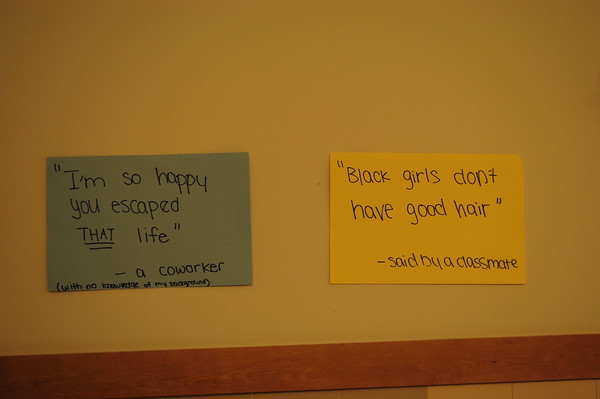 "I'm so happy
you escaped
THAT life"
- a coworker
(with no knowledge of my background)
"Black girls don't
have good hair"
- said by a classmate